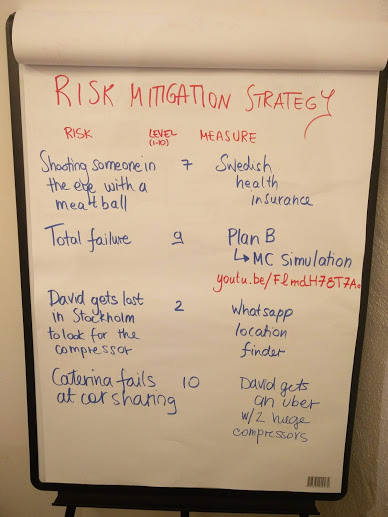 RISK MITIGATION STRATEGY
RISK LEVEL (1-10) MEASURE
Shooting someone in 7 Swedish
the eye with a health
meatball insurance
Total failure 9 Plan B
↳ MC simulation
youtu.be/FlmdH78T7A0
David gets lost 2 Whatsapp
in Stockholm location
to look for the finder
compressor
Caterina fails 10 David gets
at car sharing an uber
w/2 huge
compressors